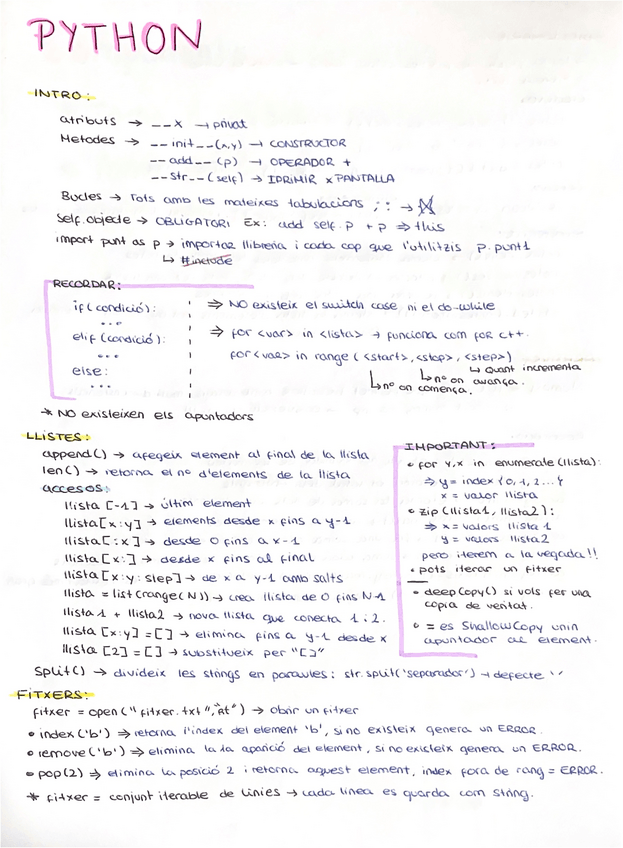 PYTHON
INTRO:
atributs → __x → privat
Metodes → __init__(x,y) → CONSTRUCTOR
__add__(p) → OPERADOR +
__str__(self) → IPRIMIR x PANTALLA
Bucles → Tots amb les mateixes tabulacions ; : →
Self.objecte → OBLIGATORI Ex: add self.p + p ⇒ this
import punt as p → importar llibreria i cada cop que l'utilitzis p.punt1
↳ #include
RECORDAR:
if(condició):
...
elif(condició):
...
else:
...
⇒ NO existeix el switch case ni el do-while
⇒ for <var> in <lista> → funciona com for c++.
for <var> in range (<start>, <stop>, <step>)
↳ Quant incrementa
↳ nº on avança.
↳ nº on comença.
* NO existeixen els apuntadors
LLISTES:
append() → afegeix element al final de la llista
len() → retorna el nº d'elements de la llista
accesos:
llista[-1] → últim element
llista[x:y] → elements desde x fins a y-1
llista[:x] → desde 0 fins a x-1
llista[x:] → desde x fins al final
llista[x:y:step] → de x a y-1 amb salts
llista = list(range(N)) → crea llista de 0 fins N-1
llista1 + llista2 → nova llista que conecta 1 i 2.
llista [x:y] = [] → elimina fins a y-1 desde x
llista [2] = [] → substitueix per "[]"
split() → divideix les strings en paraules: str.split('separador') → defecte ' '
IMPORTANT:
• for y,x in enumerate(llista):
⇒ y = index {0,1,2...}
x = valor llista
• zip(llista1, llista2):
⇒ x = valors llista 1
y = valors llista2
pero iterem a la vegada!!
• pots iterar un fitxer
• deepCopy() si vols fer una
copia de veritat.
• = es ShallowCopy
apuntador al element.
FITXERS:
fitxer = open("fitxer.txt","rt") → obrir un fitxer
• index('b') ⇒ retorna l'index del element 'b', si no existeix genera un ERROR.
• remove('b') ⇒ elimina la 1a aparició del element, si no existeix genera un ERROR.
• pop(2) ⇒ elimina la posició 2 i retorna aquest element, index fora de rang = ERROR.
* fitxer = conjunt iterable de línies → cada línea es guarda com string.